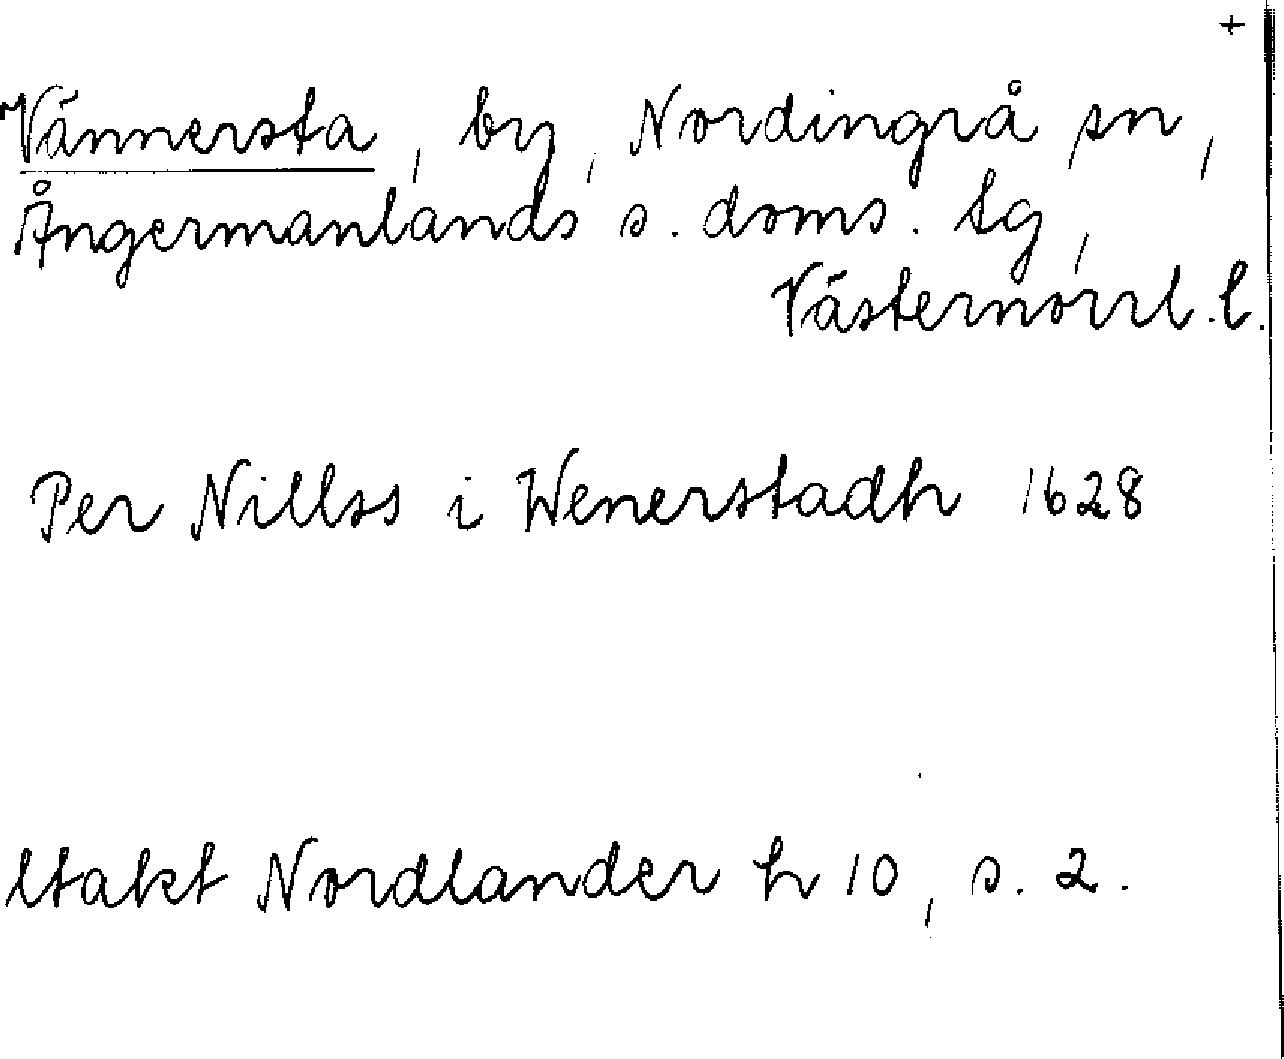 +
Vännersta, by, Nordingrå sn,
Ångermanlands s. doms. tg,
Västernorrl. l.
Per Nillss i Wenerstadh 1628
ltakt Nordlander h 10, s. 2.